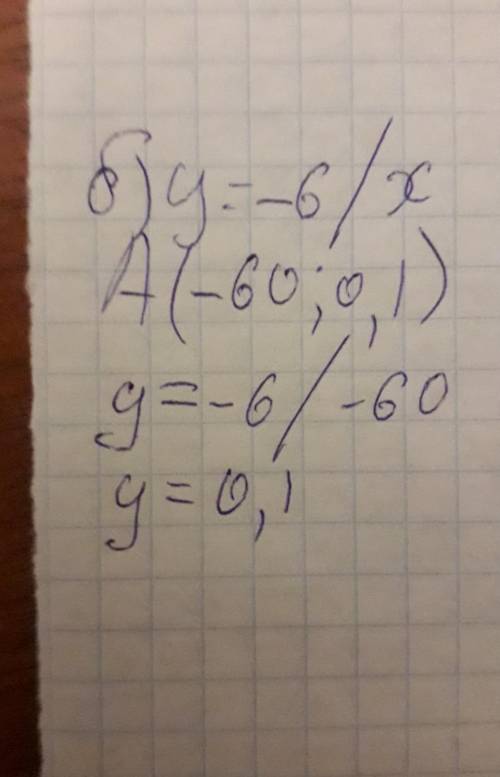 б) y = -6/x
A(-60; 0,1)
y = -6/-60
y = 0,1